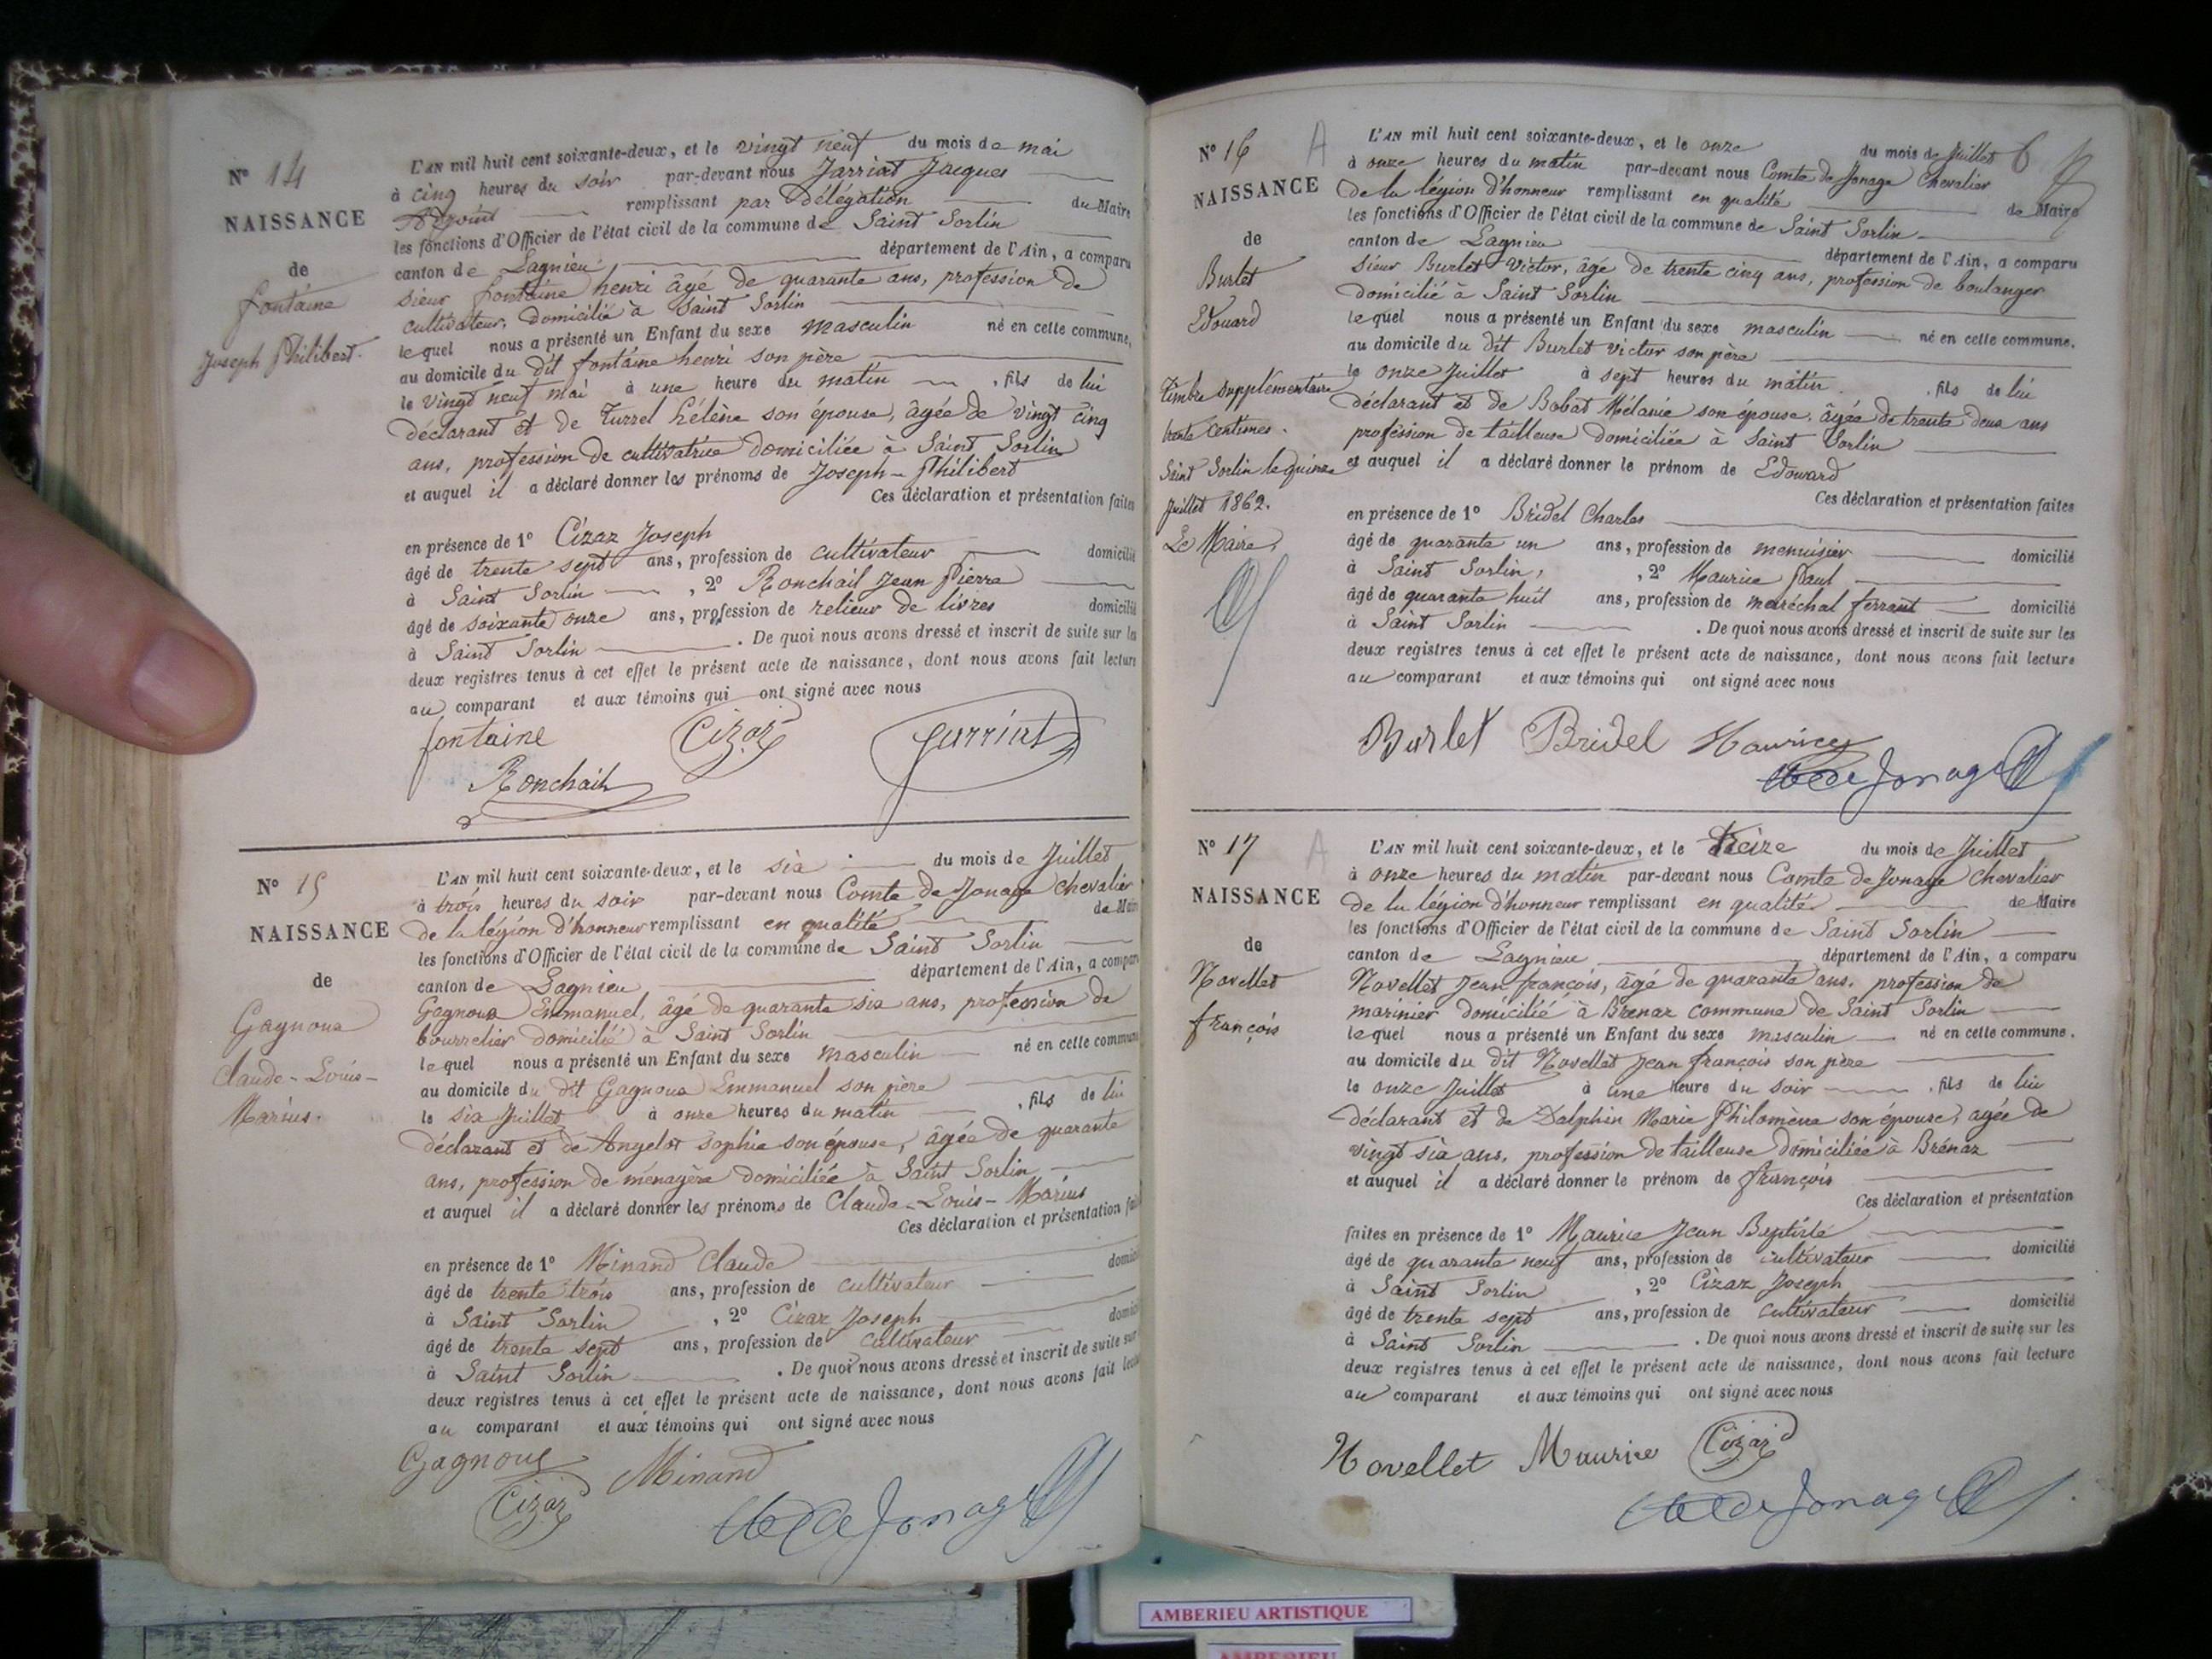 N° 14
NAISSANCE
de
fontaine
Joseph Philibert.
L'AN mil huit cent soixante-deux, et le vingt neuf du mois de mai
à cinq heures du soir par-devant nous Jarrint Jacques
Adjoint remplissant par Délégation du Maire
les fonctions d'Officier de l'état civil de la commune de Saint Sorlin
canton de Lagnieu département de l'Ain, a comparu
sieur fontaine henri âgé de quarante ans, profession de
cultivateur, domicilié à Saint Sorlin
lequel nous a présenté un Enfant du sexe masculin né en cette commune,
au domicile du dit fontaine henri son père
le vingt neuf mai à une heure du matin , fils de lui
déclarant et de Turrel hélène son épouse, âgée de vingt cinq
ans, profession de cultivatrice domiciliée à Saint Sorlin
et auquel il a déclaré donner les prénoms de Joseph-Philibert
Ces déclaration et présentation faites
en présence de 1° Cizaz Joseph
âgé de trente sept ans, profession de cultivateur domicilié
à Saint Sorlin , 2° Ronchail Jean Pierre
âgé de soixante onze ans, profession de relieur de livres domicilié
à Saint Sorlin . De quoi nous avons dressé et inscrit de suite sur les
deux registres tenus à cet effet le présent acte de naissance, dont nous avons fait lecture
au comparant et aux témoins qui ont signé avec nous
fontaine Cizaz Jarrint
Ronchail
N° 15
NAISSANCE
de
Gagnoux
Claude-Louis-
Marius.
L'AN mil huit cent soixante-deux, et le six du mois de Juillet
à trois heures du soir par-devant nous Comte de Jonage Chevalier
de la légion d'honneur remplissant en qualité de Maire
les fonctions d'Officier de l'état civil de la commune de Saint Sorlin
canton de Lagnieu département de l'Ain, a comparu
Gagnoux Emmanuel, âgé de quarante six ans, profession de
bourrelier domicilié à Saint Sorlin
lequel nous a présenté un Enfant du sexe masculin né en cette commune
au domicile du dit Gagnoux Emmanuel son père
le six Juillet à onze heures du matin , fils de lui
déclarant et de Angelot Sophie son épouse, âgée de quarante
ans, profession de ménagère domiciliée à Saint Sorlin
et auquel il a déclaré donner les prénoms de Claude-Louis-Marius
Ces déclaration et présentation
en présence de 1° Minand Claude
âgé de trente trois ans, profession de cultivateur
à Saint Sorlin , 2° Cizaz Joseph
âgé de trente sept ans, profession de cultivateur
à Saint Sorlin . De quoi nous avons dressé et inscrit de suite sur
deux registres tenus à cet effet le présent acte de naissance, dont nous avons fait lecture
au comparant et aux témoins qui ont signé avec nous
Gagnoux Minand
Cizaz Cte de Jonage
N° 16 A
NAISSANCE
de
Burlet
Edouard
Timbre supplémentaire
trente Centimes.
Saint Sorlin le quinze
Juillet 1862.
Le Maire,
6
L'AN mil huit cent soixante-deux, et le onze du mois de Juillet
à onze heures du matin par-devant nous Comte de Jonage Chevalier
de la légion d'honneur remplissant en qualité de Maire
les fonctions d'Officier de l'état civil de la commune de Saint Sorlin
canton de Lagnieu département de l'Ain, a comparu
sieur Burlet Victor, âgé de trente cinq ans, profession de boulanger
domicilié à Saint Sorlin
lequel nous a présenté un Enfant du sexe masculin né en cette commune.
au domicile du dit Burlet victor son père
le onze Juillet à sept heures du matin , fils de lui
déclarant et de Bobat Mélanie son épouse, âgée de trente deux ans
profession de tailleuse domiciliée à Saint Sorlin
et auquel il a déclaré donner le prénom de Edouard
Ces déclaration et présentation faites
en présence de 1° Bridel Charles
âgé de quarante un ans, profession de menuisier domicilié
à Saint Sorlin, , 2° Maurice Paul
âgé de quarante huit ans, profession de maréchal ferrant domicilié
à Saint Sorlin . De quoi nous avons dressé et inscrit de suite sur les
deux registres tenus à cet effet le présent acte de naissance, dont nous avons fait lecture
au comparant et aux témoins qui ont signé avec nous
Burlet Bridel Maurice
Cte de Jonage
N° 17 A
NAISSANCE
de
Novellet
françois
L'AN mil huit cent soixante-deux, et le treize du mois de Juillet
à onze heures du matin par-devant nous Comte de Jonage Chevalier
de la légion d'honneur remplissant en qualité de Maire
les fonctions d'Officier de l'état civil de la commune de Saint Sorlin
canton de Lagnieu département de l'Ain, a comparu
Novellet Jean françois, âgé de quarante ans, profession de
marinier domicilié à Brenaz commune de Saint Sorlin
lequel nous a présenté un Enfant du sexe masculin né en cette commune.
au domicile du dit Novellet Jean françois son père
le onze Juillet à une heure du soir , fils de lui
déclarant et de Dalphin Marie Philomène son épouse, agée de
vingt six ans, profession de tailleuse domiciliée à Brénaz
et auquel il a déclaré donner le prénom de françois
Ces déclaration et présentation
faites en présence de 1° Maurice Jean Baptiste
âgé de quarante neuf ans, profession de cultivateur domicilié
à Saint Sorlin , 2° Cizaz Joseph
âgé de trente sept ans, profession de cultivateur domicilié
à Saint Sorlin . De quoi nous avons dressé et inscrit de suite sur les
deux registres tenus à cet effet le présent acte de naissance, dont nous avons fait lecture
au comparant et aux témoins qui ont signé avec nous
Novellet Maurice Cizaz
Cte de Jonage
AMBERIEU ARTISTIQUE
AMBERIEU